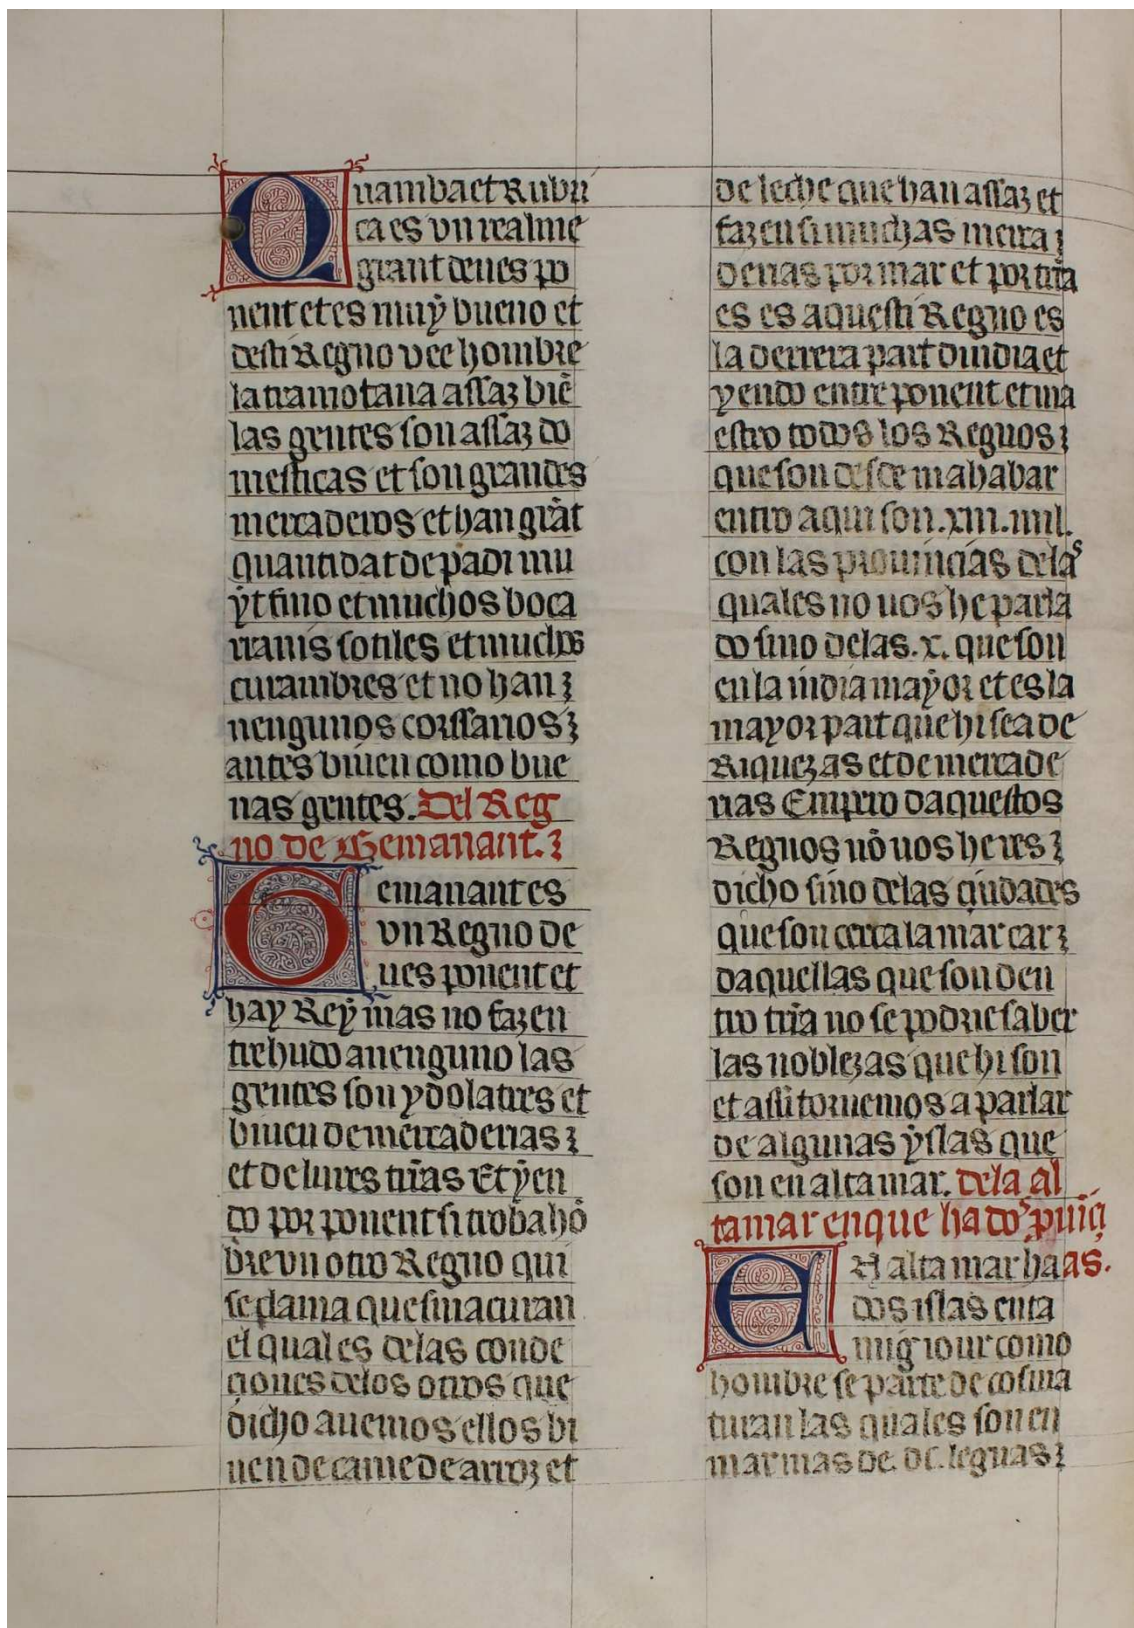 Quambaet Rubri
ca es vn realme
grant deues po
nent et es muy bueno et
desti Regno vee hombre
la tramotana assaz biẽ
las gentes son assaz do
mesticas et son grandes
mercaderos et han grãt
quantidat de padi mu
yt fino et muchos boca
ranis sotiles et muchos
curambres et no han
nengunos corssarios
antes biuen como bue
nas gentes. Del Reg
no de Semanant.
Gemanant es
vn Regno de
ues ponent et
hay Rey mas no fazen
trehudo a nenguno las
gentes son ydolatres et
biuen de mercaderias
et de lures trr̃as Et yen
do por ponent si trobahõ
bre vn otro Regno qui
se clama quesmacuran
el qual es delas conde
çiones delos otros que
dicho auemos ellos bi
uen de carne de arroz et
de leche que han assaz et
fazen si muchas merca
derias por mar et por trr̃a
es es aquesti Regno es
la derrera part dindia et
yendo entre ponent et ma
estro todos los Regnos
que son desde mahabar
entro aqui son .xiii. mil.
con las prouincias delas
quales no uos he parla
do sino delas .x. que son
en la india mayor et es la
mayor part que hi sea de
Riquezas et de mercade
rias Empero daquestos
Regnos nõ uos he res
dicho sino delas çiudades
que son cerca la mar car
daquellas que son den
tro trr̃a no se podrie saber
las noblezas que hi son
et assi tornemos a parlar
de algunas yslas que
son en alta mar. dela al
ta mar en que ha dos ꝓuĩçi
as.
EN alta mar ha
dos islas enta
mig iour como
hombre se parte de cosma
turan las quales son en
mar mas de. dc. leguas